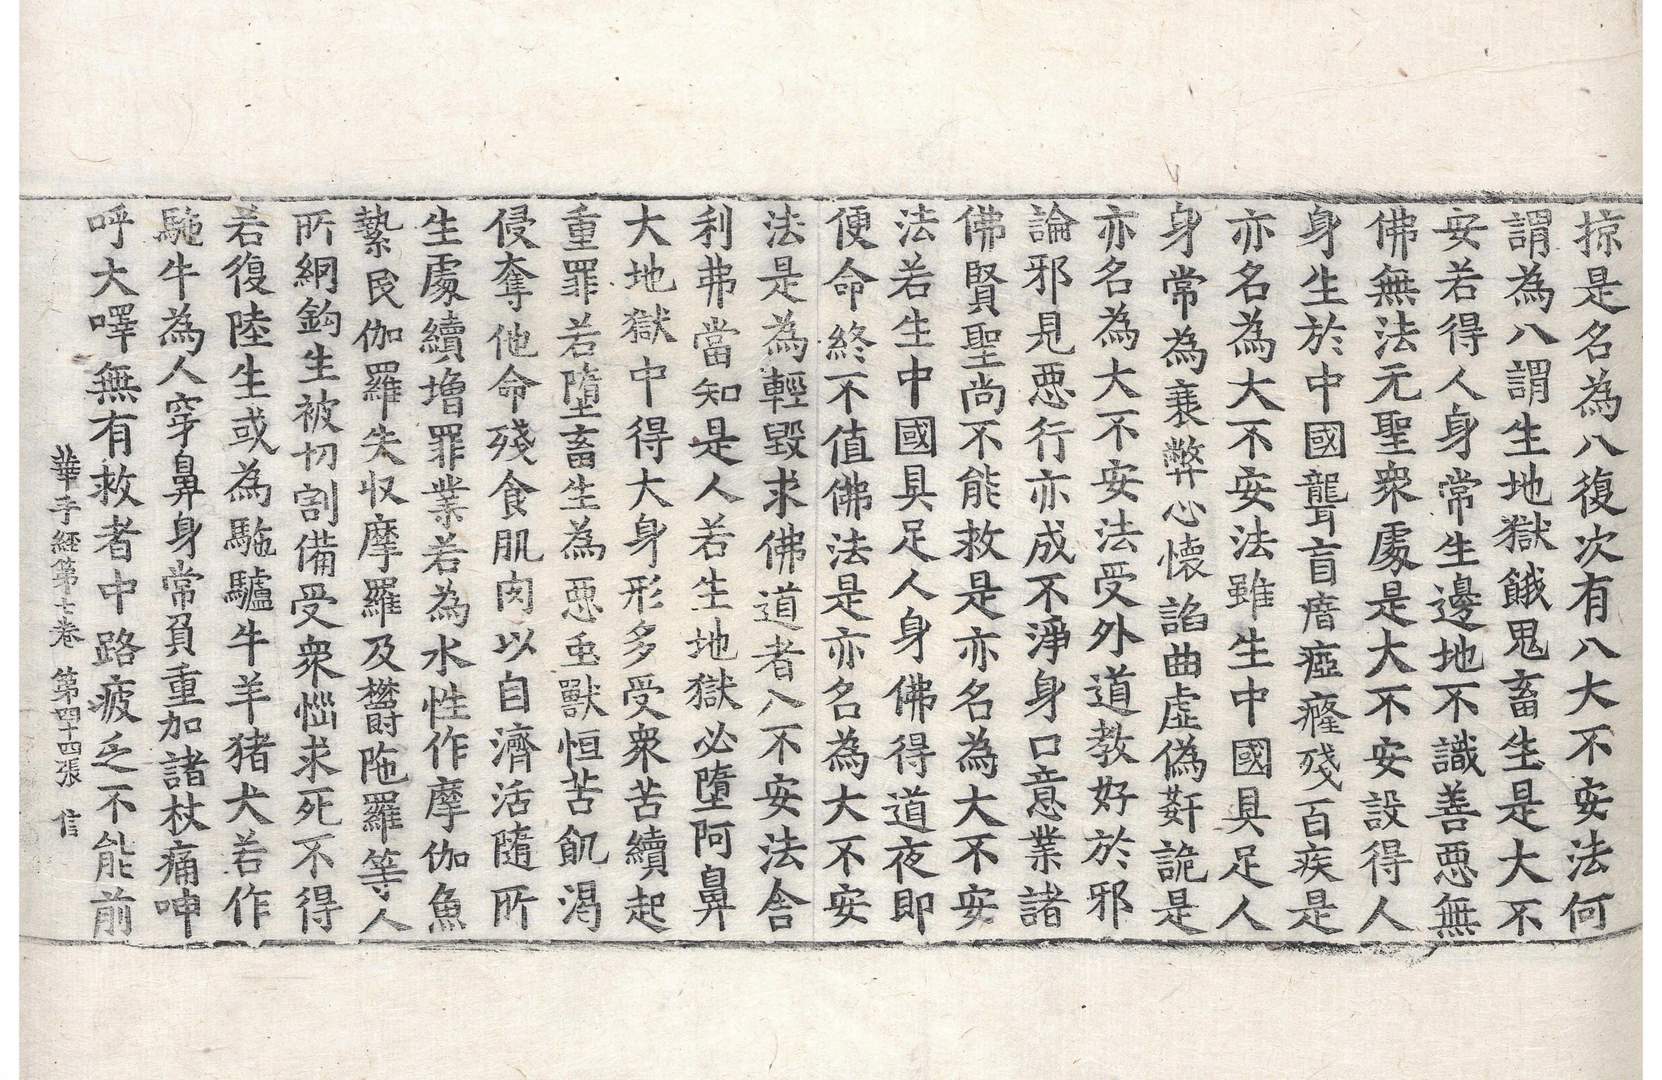 掠是名為八復次有八大不安法何
謂為八謂生地獄餓鬼畜生是大不
安若得人身常生邊地不識善惡無
佛無法无聖衆處是大不安設得人
身生於中國聾盲瘖瘂癃殘百疾是
亦名為大不安法雖生中國具足人
身常為衰弊心懷諂曲虛偽姧詭是
亦名為大不安法受外道教好於邪
論邪見惡行亦成不淨身口意業諸
佛賢聖尚不能救是亦名為大不安
法若生中國具足人身佛得道夜即
便命終不值佛法是亦名為大不安
法是為輕毀求佛道者八不安法舎
利弗當知是人若生地獄必墮阿鼻
大地獄中得大身形多受衆苦續起
重罪若墮畜生為惡虫獸恒苦飢渴
侵奪他命殘食肌肉以自濟活隨所
生處續增罪業若為水性作摩伽魚
蟄民伽羅失收摩羅及欝陁羅等人
所網鈎生被切割備受衆惱求死不得
若復陸生或為駞驢牛羊猪犬若作
駞牛為人穿鼻身常負重加諸杖痛呻
呼大嘷無有救者中路疲乏不能前
華手經第七卷 第四十四張 信